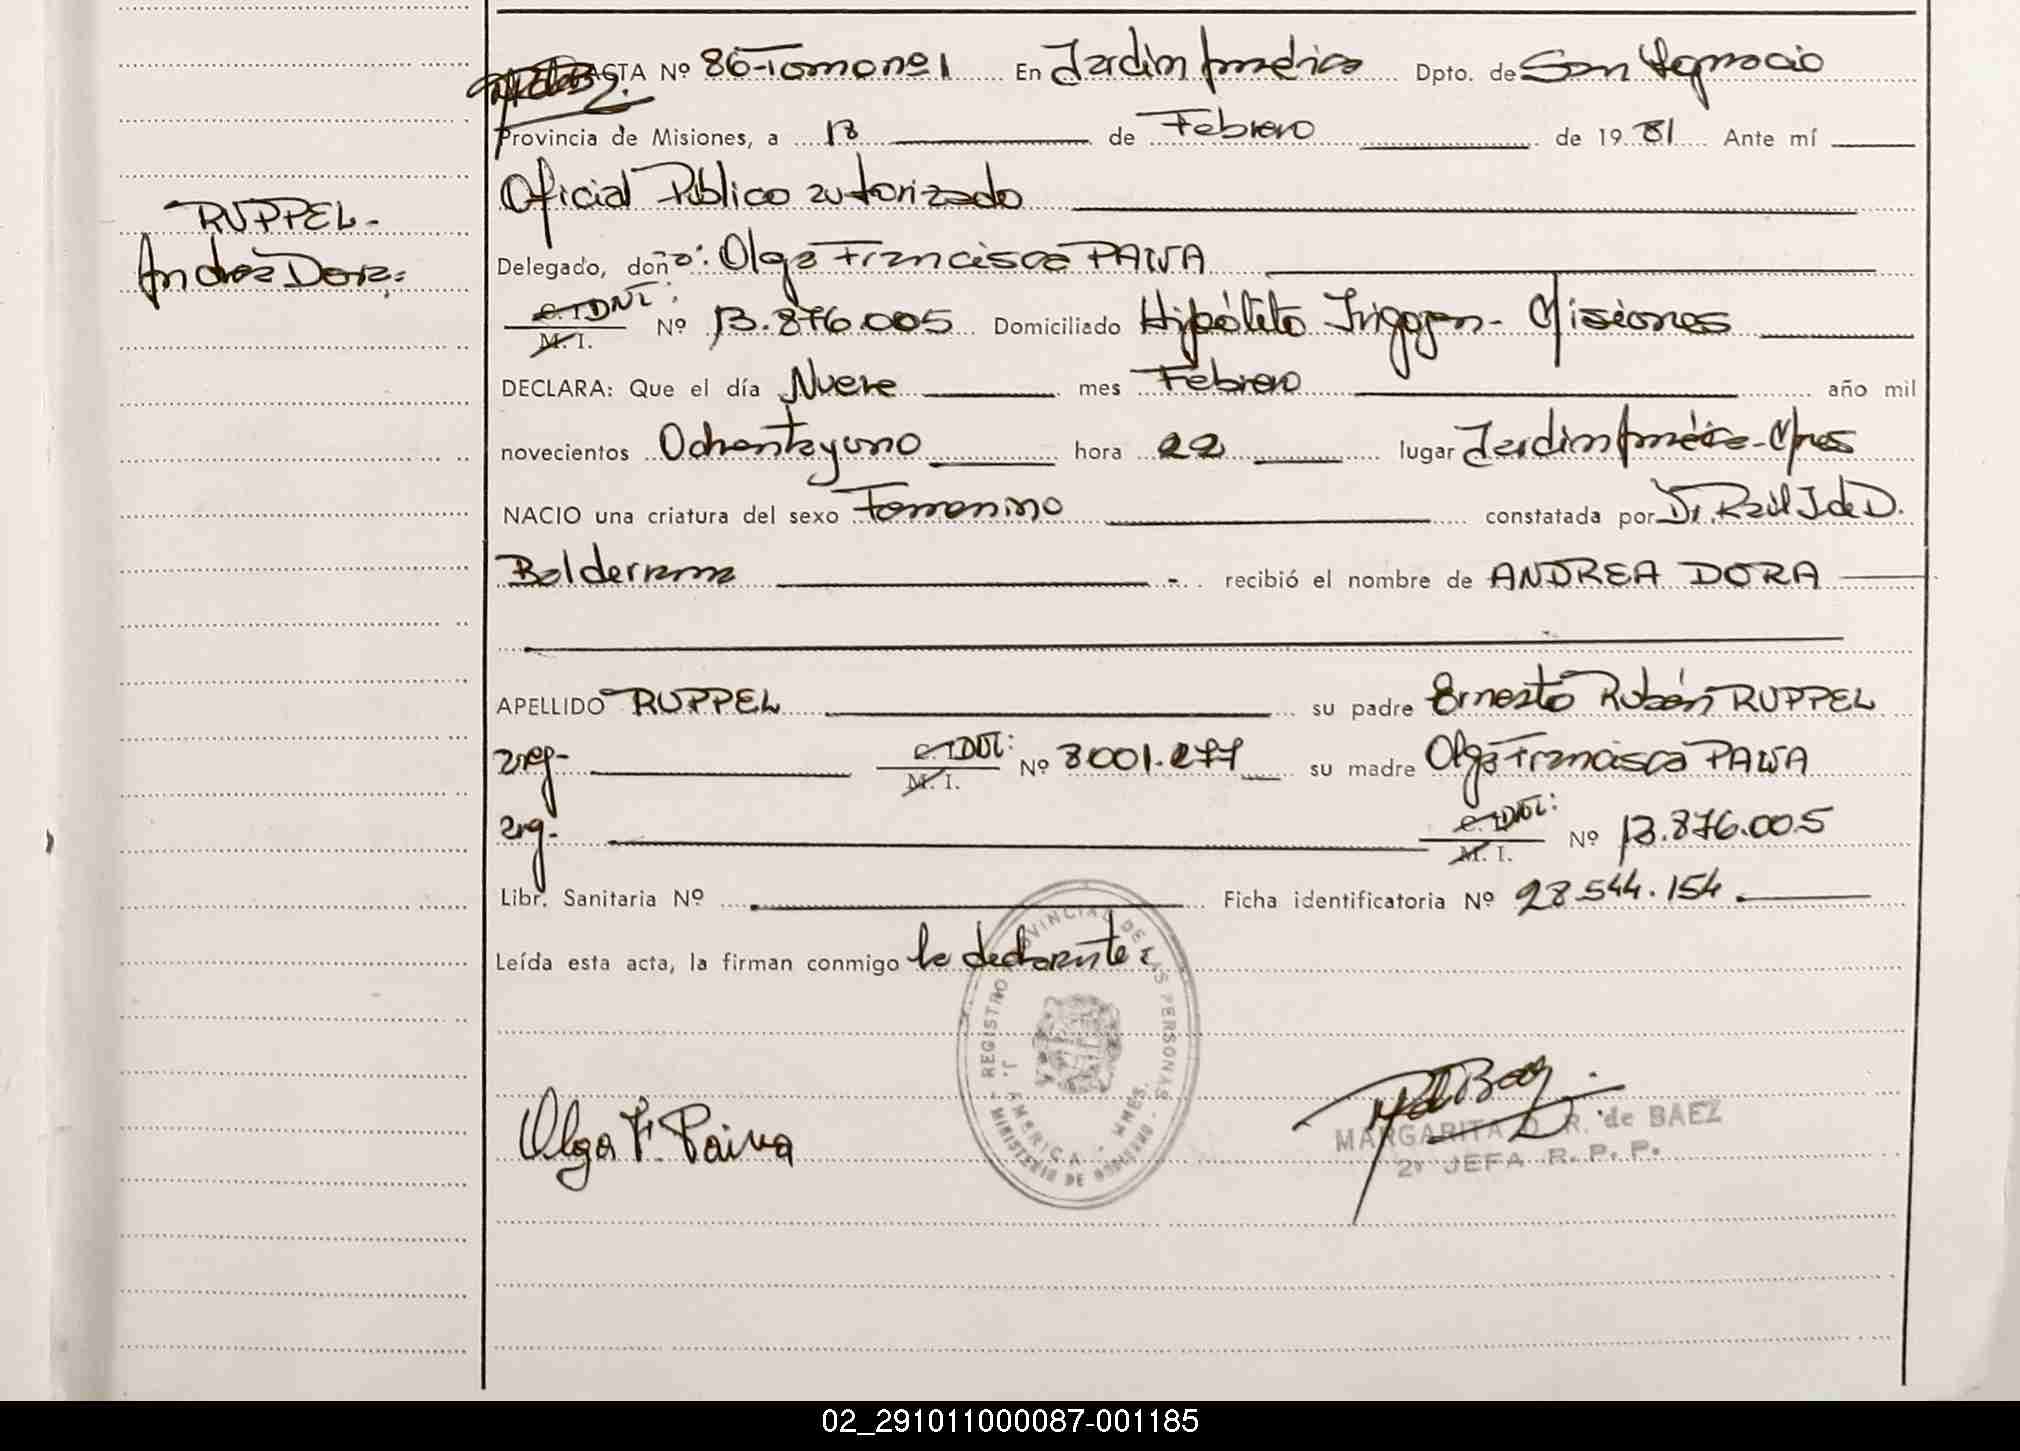 ACTA Nº 86-Tomo nº 1 En Jardin America Dpto. de San Ignacio
Provincia de Misiones, a 18 de Febrero de 1981 Ante mí
RUPPEL-
Andrea Dora:
Oficial Público autorizado
Delegado, doña: Olga Francisca PAIVA
C. I. DNI: M. I. Nº 13.876.005 Domiciliado Hipólito Irigoyen - Misiones
DECLARA: Que el día Nueve mes Febrero año mil
novecientos Ochentayuno hora 22 lugar Jardin América - Mnes
NACIO una criatura del sexo Femenino constatada por Dr. Raúl J. de D.
Balderrama recibió el nombre de ANDREA DORA
APELLIDO RUPPEL su padre Ernesto Rubén RUPPEL
arg- C. I. DNI: M. I. Nº 8001.277 su madre Olga Francisca PAIVA
arg- C. I. DNI: M. I. Nº 13.876.005
Libr. Sanitaria Nº Ficha identificatoria Nº 28.544.154
Leída esta acta, la firman conmigo la declarante
REGISTRO PROVINCIAL DE LAS PERSONAS
J. AMERICA - MNES.
- MINISTERIO DE GOBIERNO -
Olga F. Paiva
MARGARITA D. R. de BAEZ
2º JEFA R. P. P.
02_291011000087-001185